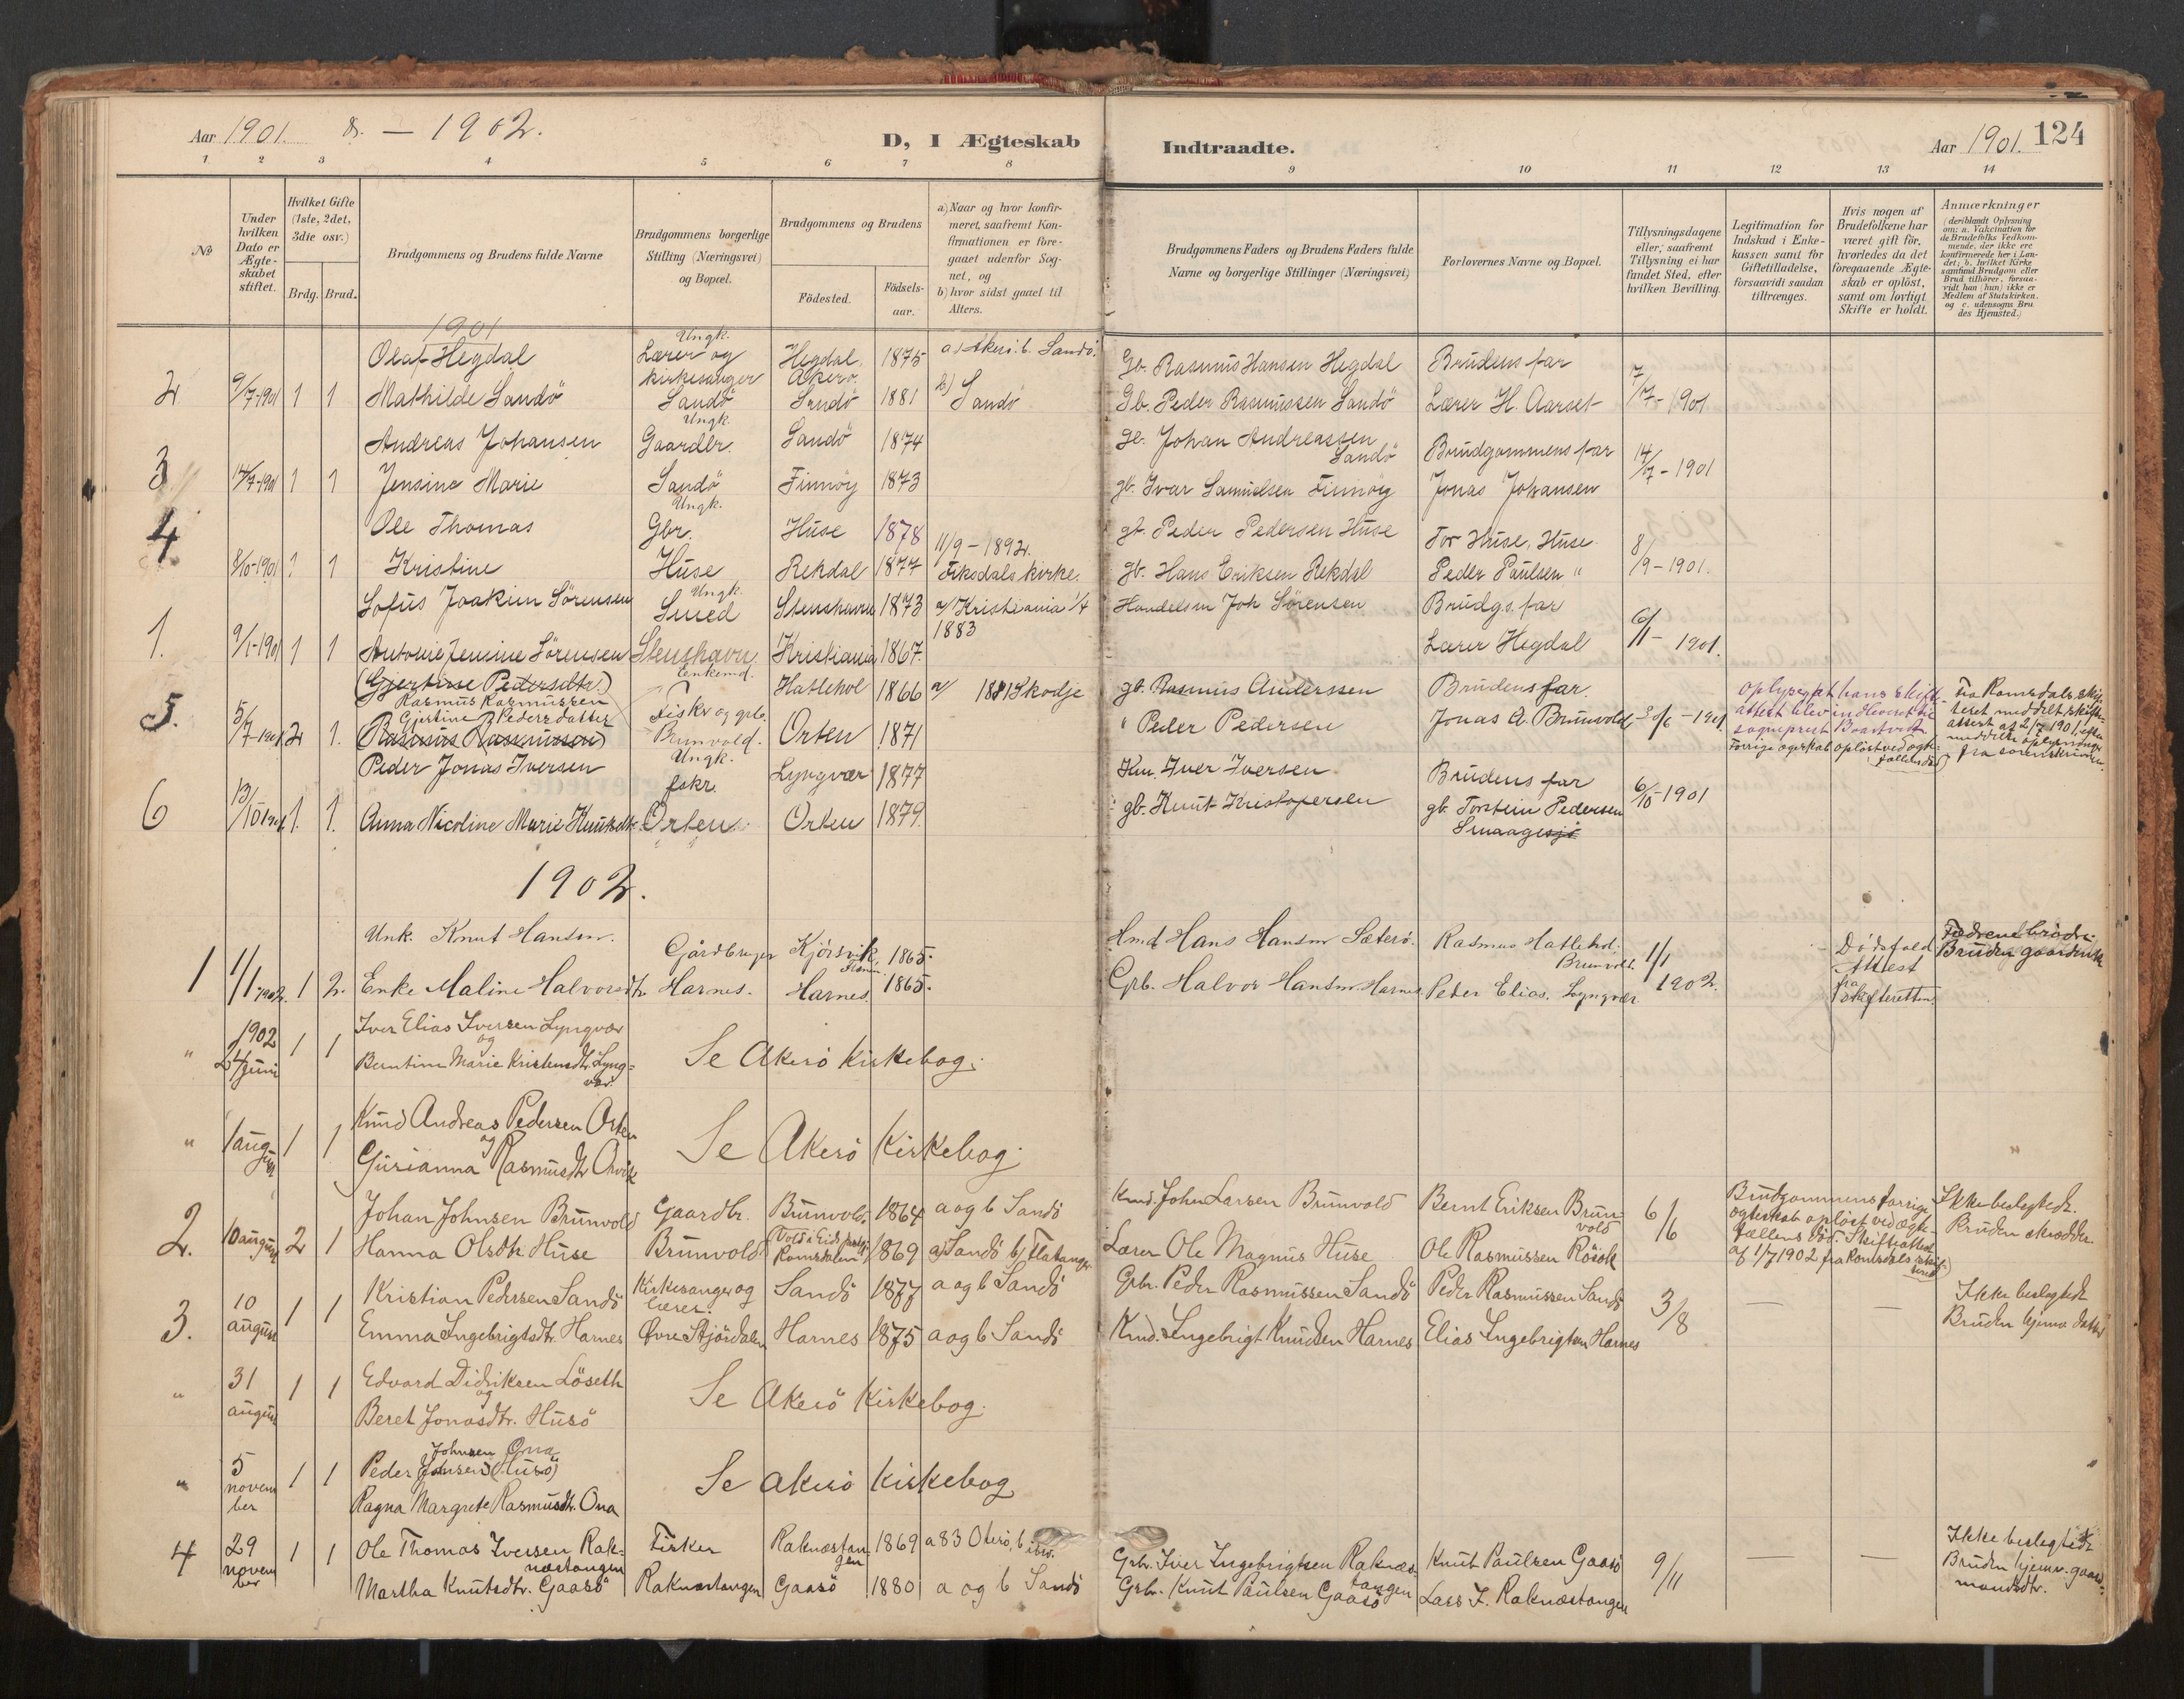 Aar 1901. & — 1902.
D, I Ægteskab Indtraadte.
Aar 1901. 124
1 2 3 4 5 6 7 8 9 10 11 12 13 14
No
Under hvilken Dato er Ægteskabet stiftet.
Hvilket Gifte (1ste, 2det, 3die osv.)
Brdg. Brud.
Brudgommens og Brudens fulde Navne
Brudgommens borgerlige Stilling (Næringsvei) og Bopæl.
Brudgommens og Brudens
Födested.
Födsels-aar.
a) Naar og hvor konfir-
meret, saafremt Kon-
firmationen er fore-
gaaet udenfor Sog-
net, og
b) hvor sidst gaaet til
Alters.
Brudgommens Faders og Brudens Faders fulde
Navne og borgerlige Stillinger (Næringsvei)
Forlovernes Navne og Bopæl.
Tillysningsdagene
eller, saafremt
Tillysning ei har
fundet Sted, efter
hvilken Bevilling.
Legitimation for
Indskud i Enke-
kassen samt for
Giftetilladelse,
forsaavidt saadan
tiltrænges.
Hvis nogen af
Brudefolkene har
været gift för,
hvorledes da det
foregaaende Ægte-
skab er oplöst,
samt om lovligt
Skifte er holdt.
Anmærkninger
(deriblandt Oplysning
om: a. Vakcination for
de Brudefolks Vedkom-
mende, der ikke ere
konfirmerede her i Lan-
det; b. hvilket Kirke
samfund Brudgom eller
Brud tilhörer, forsaa-
vidt han (hun) ikke er
Medlem af Statskirken.
og c. udensogns Bru
des Hjemsted.)
1901
Olaf Hegdal Ungk. Lærer og Hegdal, 1875 a) Akerö. b. Sandö. Gb. Rasmus Hansen Hegdal Brudens far
2 9/7-1901 1 1 Mathilde Sandö kirkesanger Sandö Akerö. Sandö 1881 b) Sandö Gb. Peder Rasmussen Sandö Lærer H. Aarset 7/7-1901
Andreas Johansen Ungk. Gaardbr. Sandö 1874 ge. Johan Andreassen Sandö Brudgommens far
3 14/7-1901 1 1 Jensine Marie Sandö Finnöy 1873 gb. Ivar Samuelsen Finnöy Jonas Johansen 14/7-1901
Ole Thomas Ungk. Gbr. Huse 1878 gb. Peder Pedersen Huse Tor Huse, Huse
4 8/10-1901 1 1 Kristine Huse Rekdal 1877 11/9-1892. Fiksdals kirke. gb. Hans Eriksen Rekdal Peder Paulsen " 8/9-1901.
Sofus Joakim Sörensen Ungk. Smed Stenshavn 1873 a/ Kristiania 1/4 1883 Handelsm Joh Sörensen Brudgs. far
1. 9/1-1901 1 1 Antonie Jensine Sörensen Stenshavn Kristiania 1867. Lærer Hegdal 6/1-1901.
(Gjertine Pedersdtr.) Rasmus Rasmussen Enkemd. Fisker og gbr. Hatlehol 1866 a/ 1881 Skodje gb. Rasmus Anderssen Brudens far.
5. 5/7-1901 2 1. Gjertine Pedersdatter (Rasmus Rasmussen) Brunvold. Orten 1871 " Peder Pedersen Jonas A. Brunvold 30/6-1901
Forrige ægteskab oplöst ved ægtefællens död
Fra Romsdals skifteret meddelt skifteattest af 2/7 1901, efter meddelte oplysninger fra sorenskriveren.
Peder Jonas Iversen Ungk. fskr. Lyngvær 1877 Km. Iver Iversen Brudens far
6 13/10 1901 1. 1. Anna Nicoline Marie Knutsdtr Orten. Orten 1879. gb. Knut Kristofersen gb. Torstein Pedersen Smaage 6/10-1901
1902.
Unk. Knut Hansen. Gårdbruger Kjörsvik, 1865. Hmd Hans Hansen Sæterö. Rasmus Hatlehol. Brunvold. 1/1 Dödsfald Brudens gaard
1 1/1 1902. 1 2. Enke Maline Halvorsdtr. Harnes. Harnes. 1865. Grb. Halvor Hansen Harnes Peder Elias. Lyngvær. 1902. Attest fra Skifteretten
" 1902 24 juni 1 1 Iver Elias Iversen Lyngvær
og
Berntine Marie Kristensdtr. Lyngvær. Se Akerö Kirkebog.
" 1 august 1 1 Knud Andreas Pedersen Orten
og
Gurianna Rasmusdtr Orvik Se Akerö Kirkebog.
Johan Johnsen Brunvold Gaardbr. Brunvold. 1864 a og b Sandö Kmd. John Larsen Brunvold Bernt Eriksen Brunvold 6/6 Brudgommens forrige ægteskab oplöst ved ægtefællens död. Skifteattest af 1/7 1902 fra Romsdals skifteret Ikke beslegtede.
2. 10 august 2 1 Hanna Olsdtr Huse Brunvold Vold i Eid Romsdalen 1869 a) Sandö b) Flatanger Lærer Ole Magnus Huse Ole Rasmussen Rösok Bruden skrædder.
Kristian Pedersen Sandö Kirkesanger og lærer. Sandö 1877 a og b Sandö Grbr. Peder Rasmussen Sandö Peder Rasmussen Sandö 3/8 — — Ikke beslegtede
3. 10 august 1 1 Emma Ingebrigtsdtr. Harnes Övre Stjördalen Harnes 1875 a og b Sandö Kmd. Ingebrigt Knudsen Harnes Elias Ingebrigtsen Harnes Bruden hjemv. datter
" 31 august 1 1 Edvard Didriksen Löseth
og
Beret Jonasdtr. Husö Se Akerö Kirkebog.
" 5 november 1 1 Peder Johnsen Ona (Johnsen Husö)
Ragna Margrete Rasmusdtr. Ona Se Akerö Kirkebog
4 29 november 1 1 Ole Thomas Iversen Raknæstangen Fisker Raknæstangen 1869 a 83 Akerö, b ibid. Grbr. Iver Ingebrigtsen Raknæstangen Knut Paulsen Gaasö 9/11 — — Ikke beslegtede
Martha Knutsdtr. Gaasö Raknæstangen Gaasö 1880 a og b Sandö Grbr. Knut Paulsen Gaasö Lars I. Raknæstangen Bruden hjemv. gaardmandsdtr.